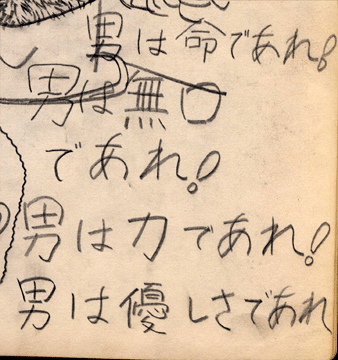 男は命であれ!
男は無口
であれ!
男は力であれ!
男は優しさであれ